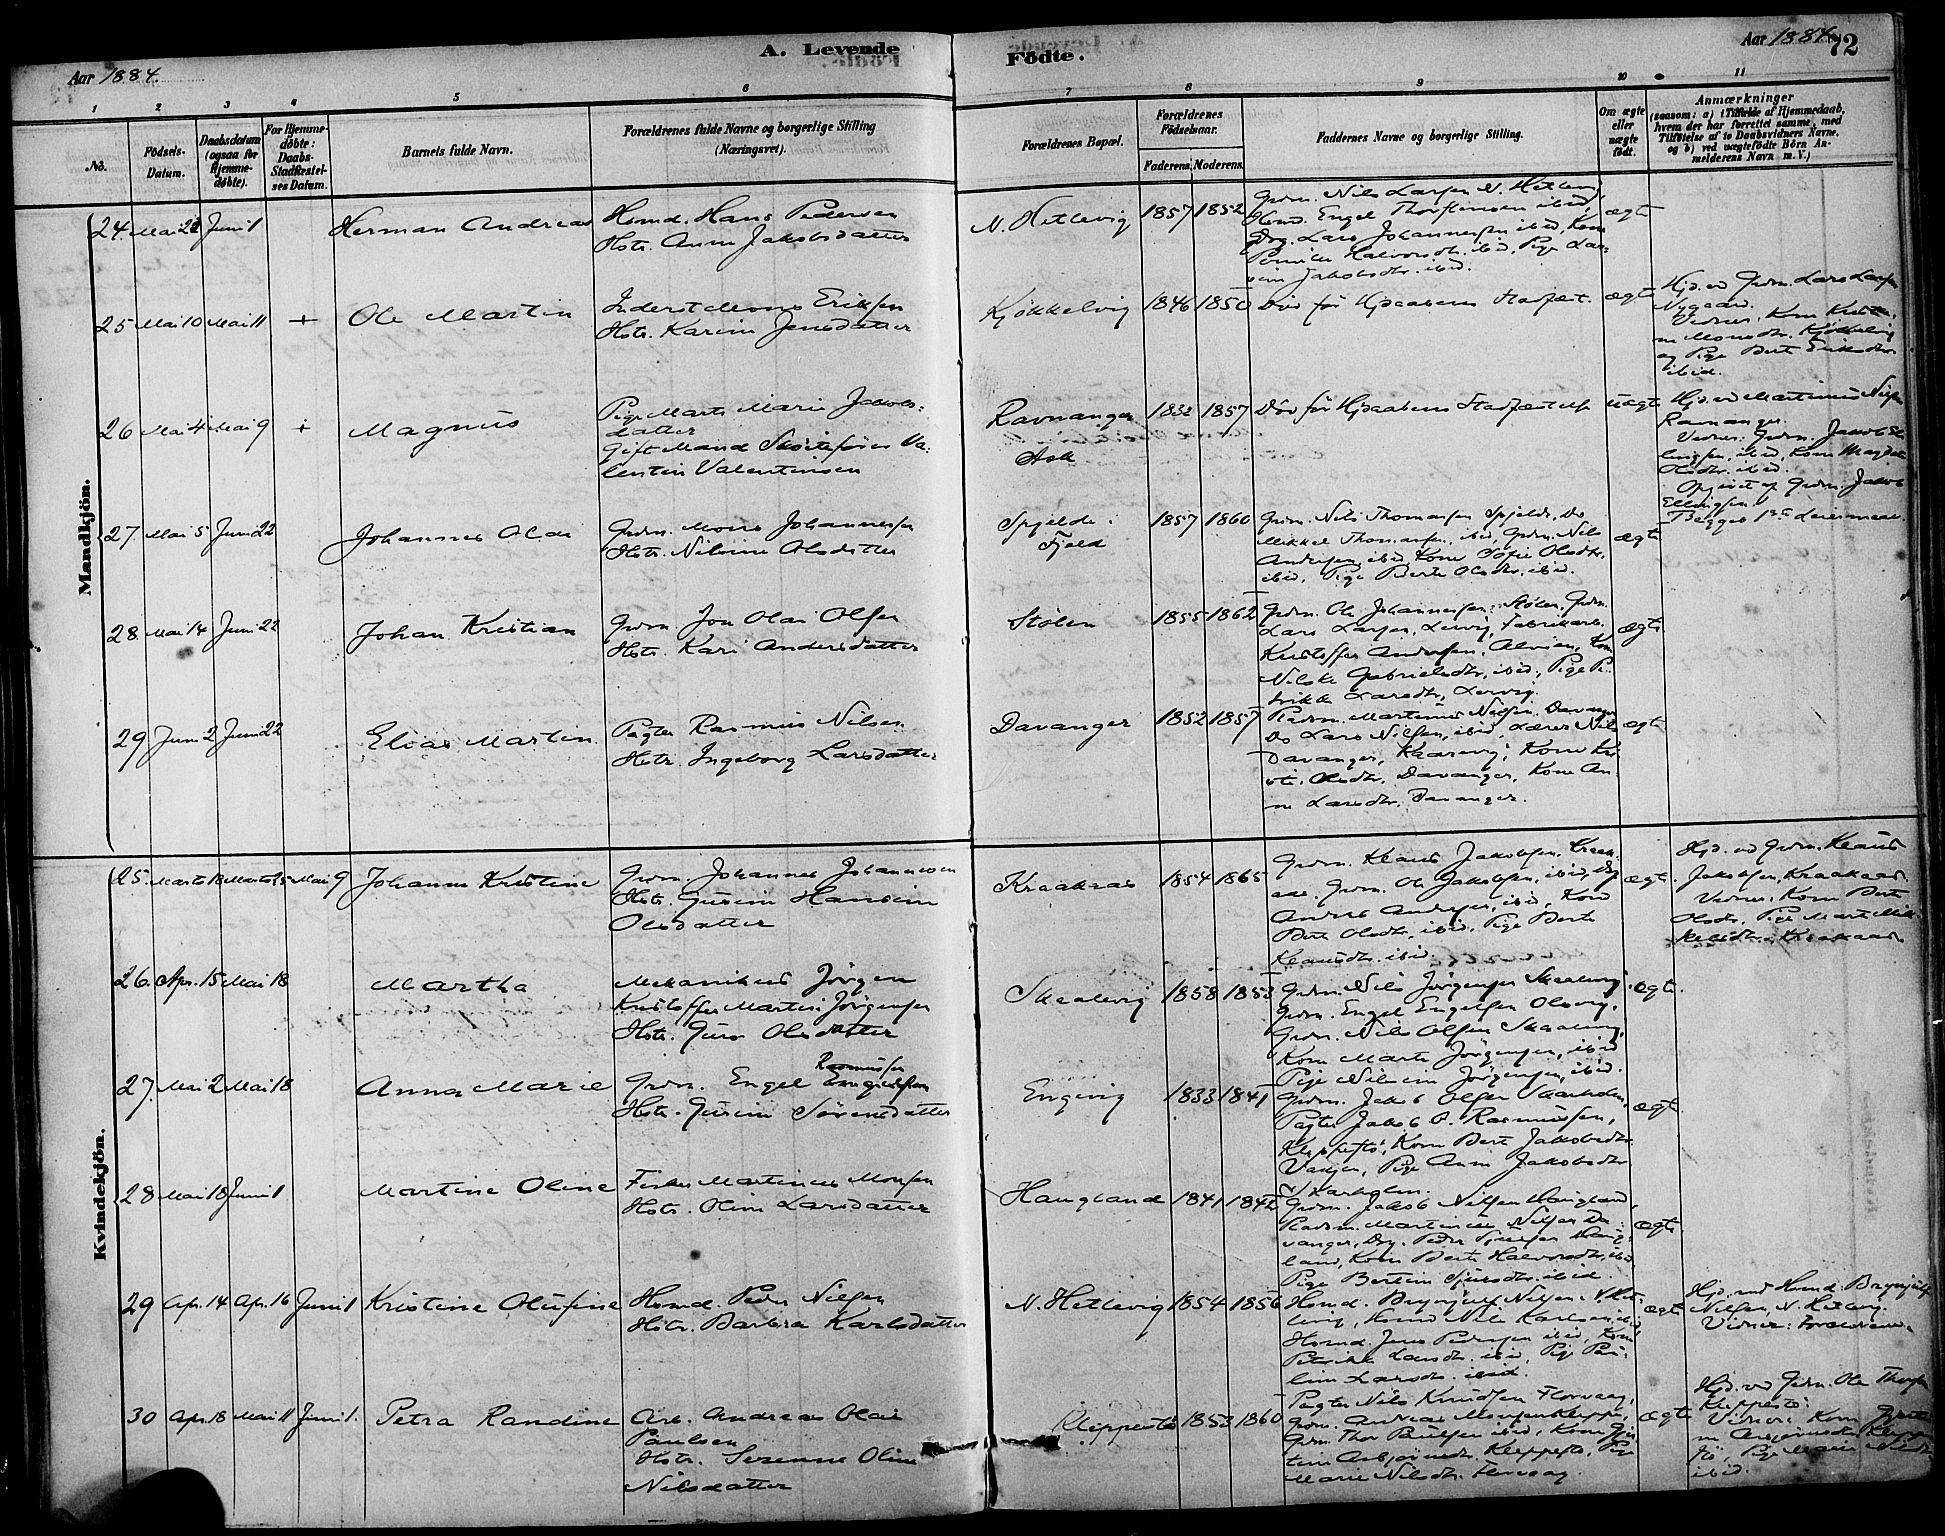 Aar 1884.
A. Levende
Födte.
Aar 1884.
72
1 2 3 4 5 6 7 8 9 10 11
No.
Födsels-
Datum.
Daabsdatum
(ogsaa for
Hjemme-
døbte).
For Hjemme-
døbte:
Daabs-
Stadfæstel-
ses Datum.
Barnets fulde Navn.
Forældrenes fulde Navne og borgerlige Stilling
(Næringsvei).
Forældrenes Bopæl.
Forældrenes
Födselsaar.
Faderens. Moderens.
Faddernes Navne og borgerlige Stilling.
Om ægte
eller
uægte
født.
Anmærkninger
(saasom: a) i Tilfælde af Hjemmedaab,
hvem der har forrettet samme, med
Tilføielse af to Daabsvidners Navne,
og b) ved uægtefödte Börn An-
melderens Navn m. V.)
Mandkjön.
24. Mai 21 Juni 1
Herman Andreas
Hsmd. Hans Pedersen
Hstr. Anna Jakobsdatter
N. Hetlevig
1857 1852
Grdm. Nils Larsen N. Hetlevig,
Hsmd. Engel Thorstensen ibid,
Drg. Lars Johannessen ibid, Kone
Pernille Halvorsdtr. ibid, Pige Lar-
sine Jakobsdtr. ibid.
ægte
25 Mai 10 Mai 11 +
Ole Martin
Inderst Mons Eriksen
Hstr. Karine Jensdatter
Kjøkkelvig
1846 1850
Død før Hjdaabens Stadfæst.
ægte
Hjd. ved Grdm. Lars Larsen
Nygaard.
Vidner, Kone
Monsdtr. Kjøkkelvig
og Pige Berte Eriksdtr.
ibid.
26 Mai 4 Mai 9 +
Magnus
Pige Marte Marie Jakobs-
datter
Gift Mand Skøiteføer Va-
lentin Valentinsen
Ravnanger
Ask
1832 1857
Død før Hjdaabens Stadfæstelse
uægte
Hjd. ved Martinus Nilsen
Ravnanger.
Vidner: Grdm. Jakob El-
lingsen, ibid, Kone
Olsdtr. ibid.
Opgivet af Grdm. Jakob
Ellingsen
Begges 1ste Leiermaal.
27 Mai 5 Juni 22
Johannes Olai
Grdm. Mons Johannessen
Hstr. Nilsine Olsdatter
Spjelde i
Fjeld
1857 1860
Grdm. Nils Thomassen Spjelde, Do
Mikkel Thomassen, ibid, Grdm. Nils
Andersen, ibid, Kone Sofie Olsdtr,
ibid, Pige Berte Olsdtr. ibid.
ægte
28 Mai 14 Juni 22
Johan Kristian
Grdm Jon Olai Olsen
Hstr. Kari Andersdatter
Stølen
1855 1862
Grdm. Ole Johannessen, Stølen, Grdm.
Lars Larsen, Lervig, Fabrikarb.
Kristoffer Andersen, Alvøen, Kone
Nilske Gabrielsdtr, ibid, Pige Pe-
trikke Larsdtr, Lervig.
ægte
29 Juni 2 Juni 22
Elias Martin
Pagter Rasmus Nilsen
Hstr. Ingeborg Larsdatter
Davanger
1852 1857
Martinus Nilsen, Davanger
Do Lars Nilsen, ibid, Lærer Nils
Davanger, Kaarevig, Kone
Olsdtr, Davanger, Kone An-
ne Larsdtr, Davanger.
ægte
Kvindekjön.
25. Marts 18 Marts 25 Mai 9
Johanne Kristine
Grdm. Johannes Johannesen
Hstr. Gurine Hansine
Olsdatter
Kraakaas
1854 1865
Grdm. Klaus Jakobsen, Kraak-
aas, Grdm. Ole Jakobsen, ibid, Drg
Andreas Andersen, ibid, Kone
Berte Olsdtr, ibid, Pige Berte
Klausdtr. ibid
ægte
Hjd. ved Grdm. Klaus
Jakobsen, Kraakaas.
Vidner: Kone Berte
Olsdtr, Pige Marte Mik-
kelsdtr. Kraakaas
26. Apr. 15 Mai 18
Martha
Mekanikus Jörgen
Kristoffer Martin Jörgensen
Hstr. Guro Olsdatter
Skaalevig
1858 1853
Grdm. Nils Jörgensen Skaalevig,
Grdm. Engel Engelsen Olsvig,
Grdm. Nils Olsen Skaalevig,
Kone Marte Jörgensen, ibid
Pige Nilsine Jörgensen, ibid.
ægte
27. Mai 2 Mai 18
Anna Marie
Grdm. Engel Rasmussen
Hstr. Gurine Sørensdatter
Engevig
1833 1841
Grdm. Jakob Olsen Skarholm,
Pagter Jakob O. Rasmussen,
Kleppestø, Kone Berte Jakobsdtr.
Pige Anne Jakobsdtr
Skarholm.
ægte
28 Mai 18 Juni 1
Martine Oline
Fisker Martinus Monsen
Hstr. Oline Larsdatter
Haugland
1841 1842
Grdm. Jakob Nilsen Haugland,
Martinus Nilsen Da-
vanger, Drg. Peder Haug-
land, Kone Berte Halvorsdtr, ibid
Pige Bertine ibid.
ægte
29 Apr. 14 Apr. 16 Juni 1
Kristine Olufine
Hsmd. Peder Nilsen
Hstr. Barbra Karlsdatter
N. Hetlevig
1854 1856
Hsmd. Brynjulf Nilsen N. Het-
levig, Hsmd Nils Karlsen, ibid
Hsmd. Jens Pedersen ibid, Kone
Petrikke Larsdtr. ibid, Pige Pau-
line Larsdtr. ibid.
ægte
Hjd. ved Hsmd. Brynjulf
Nilsen, N. Hetlevig.
Vidner: Forældrene.
30 Apr. 18 Mai 11 Juni 1.
Petra Randine
Arb. Andreas Olai
Paulsen
Hstr. Serenne Oline
Nilsdatter
Kleppestø
1853 1860
Pagter Nils Knudsen Florvaag,
Grdm. Andreas Monsen Kleppe,
Grdm Thor Paulsen ibid, Kone Gjer-
tine Asbjørnsdtr. Kleppestø, Pige
Marie Nilsdtr. Florvaag.
ægte
Hjd. ved Grdm. Ole Thorsen
Kleppestø:
Vidner: Kone
Asbjørnsdtr. Kleppe-
stø, Pige Marie Nilsdtr
ibid.